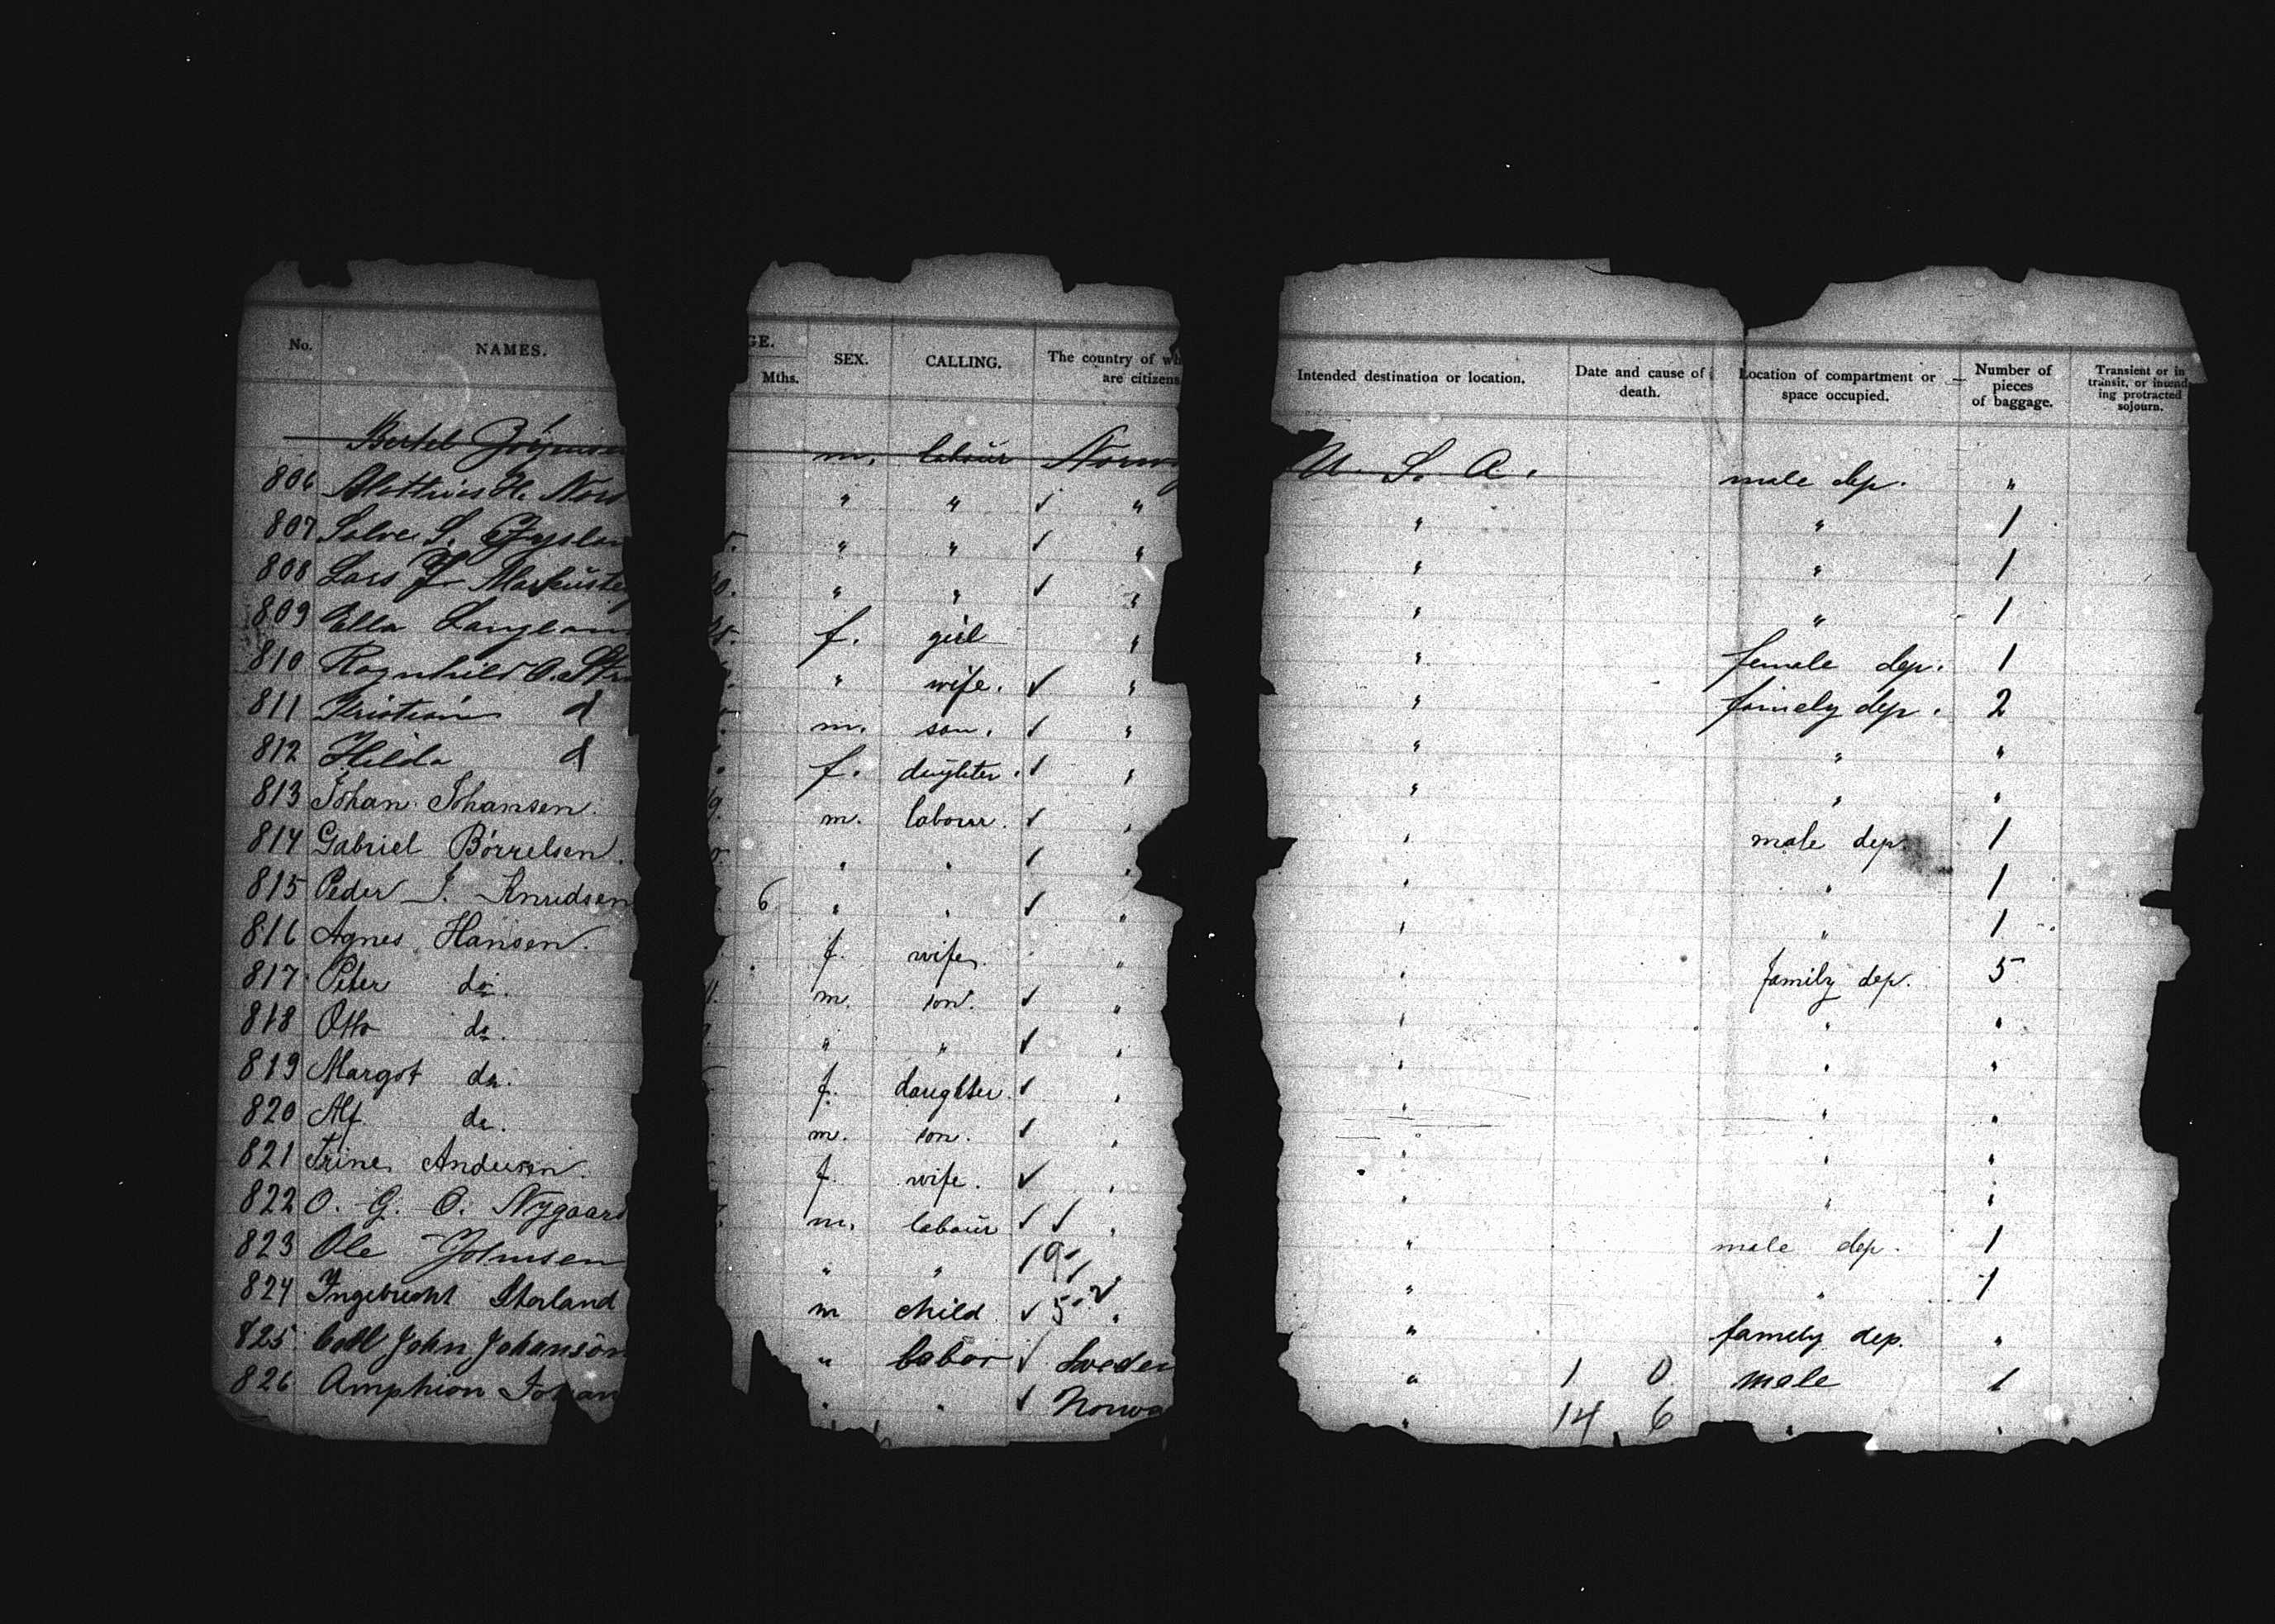 No. NAMES. GE. Mths. SEX. CALLING. The country of wh are citizens Intended destination or location. Date and cause of death. Location of compartment or space occupied. Number of pieces of baggage. Transient or in transit, or intend- ing protracted sojourn.
Bertel m. labour Norw U. S. A. male dep. "
806 H. " " ✓ " " " 1
807 Salve S. " " ✓ " " " 1
808 Lars " " ✓ " " " 1
809 Ella f. girl " " female dep. 1
810 Ragnhild O. " wife. ✓ " " famely dep. 2
811 Kristian d m. son. ✓ " " " "
812 Hilda d f. daughter. ✓ " " " "
813 Johan Johansen. 9. m. labour. ✓ " " male dep. 1
814 Gabriel Börrelsen. " " ✓ " " " 1
815 Peder J. Knudsen 6 " " ✓ " " " 1
816 Agnes Hansen. f. wife. " " family dep. 5
817 Peter do. m. son. ✓ " " " "
818 Otto do. " " ✓ " " " "
819 Margot do. f. daughter. ✓ " " " "
820 Alf do. m. son. ✓ " " " "
821 Trine Andersen. f. wife. ✓ " " " "
822 O. G. O. Nygaard m. labour ✓ ✓ " " male dep. 1
823 Ole Johnsen " " " " " 1
824 Ingebrecht Storland m child ✓ 5 " " family dep. "
825 Carl John Johanson " labor ✓ Sweden " 1 0 male 1
826 Amphion Johan " " ✓ Norwa " 14 6 " "